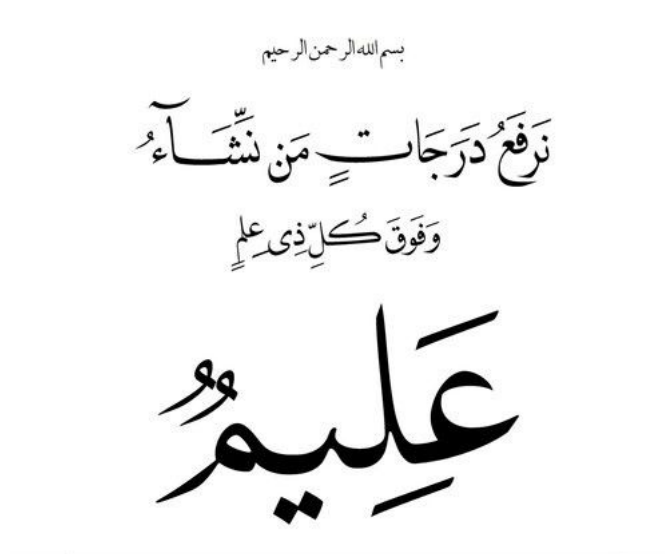 بسم الله الرحمن الرحيم
نَرفَعُ دَرَجَاتٍ مَن نَّشَآءُ
وَفَوقَ كُلِّ ذِى عِلمٍ
عَلِيمٌ